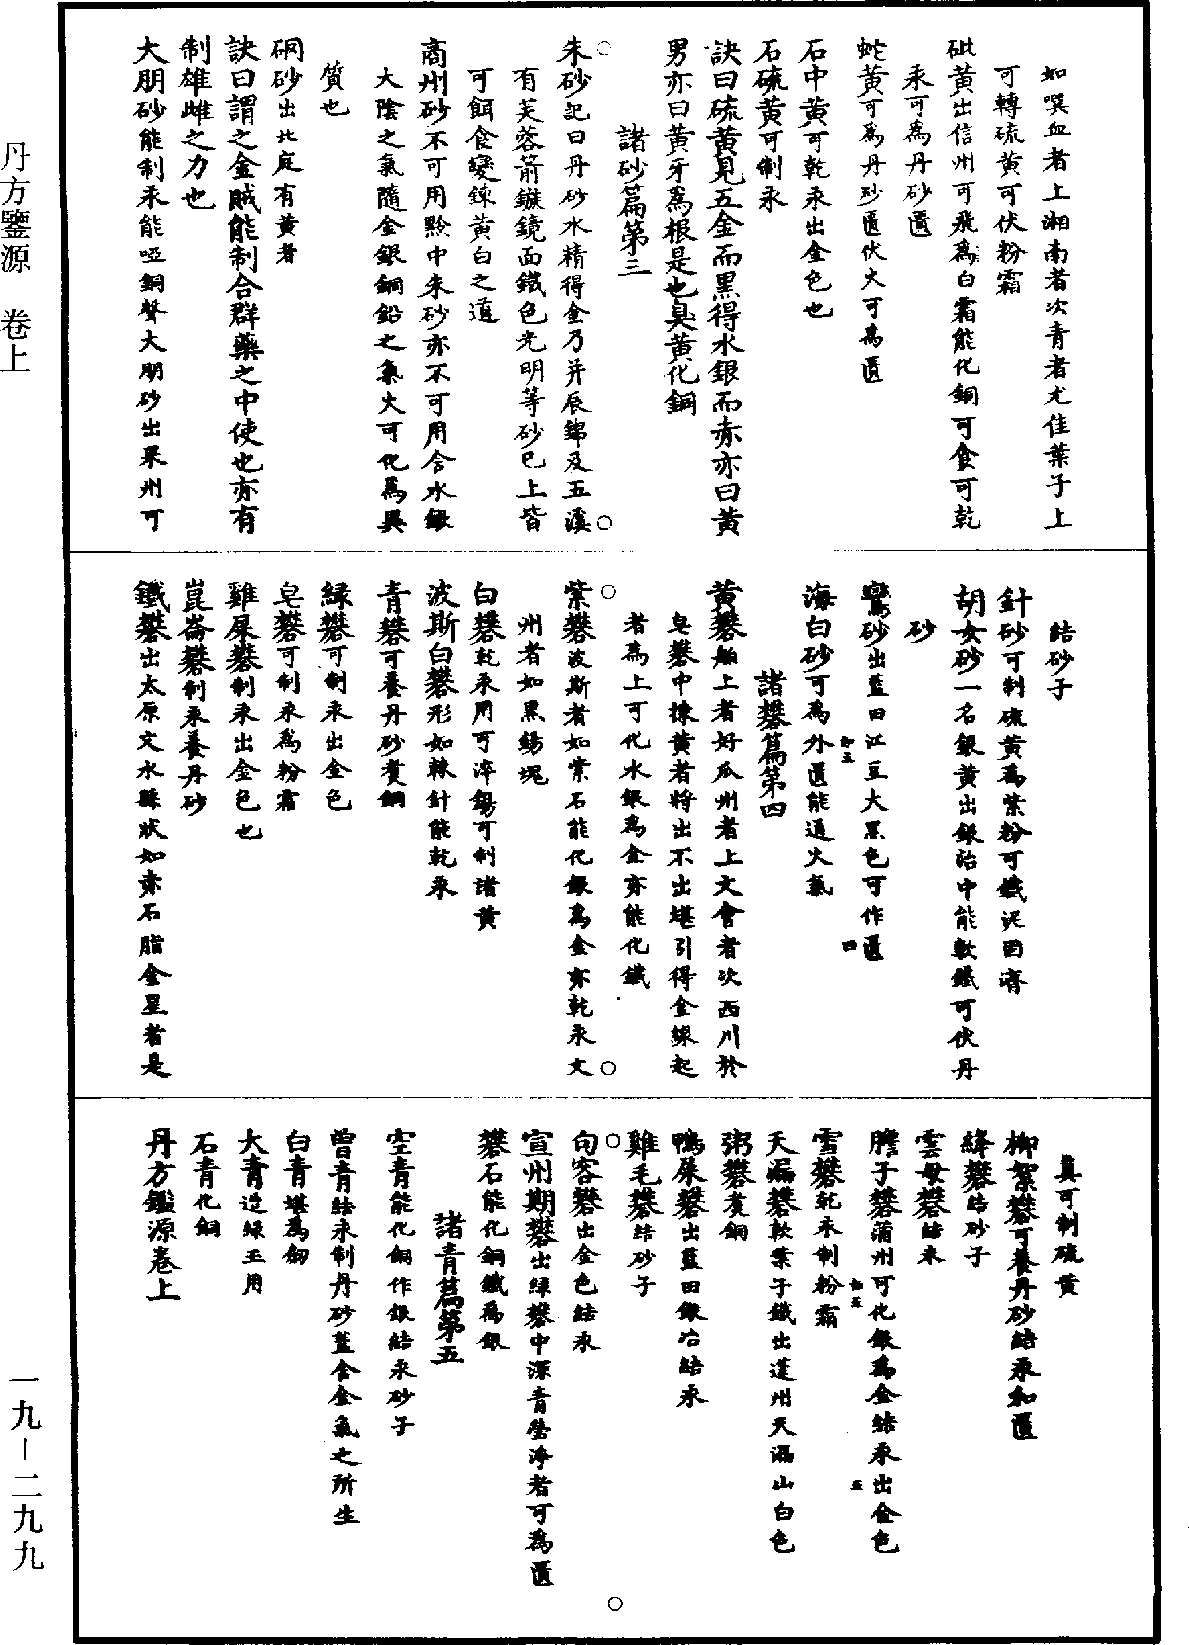 如噀血者上湘南者次青者尤佳葉子上
可轉硫黃可伏粉霜
砒黃出信州可飛爲白霜能化銅可食可乾
汞可爲丹砂匱
蛇黃可爲丹砂匱伏火可爲匱
石中黃可乾汞出金色也
石硫黃可制汞
訣曰硫黃見五金而黑得水銀而赤亦曰黃
男亦曰黃牙爲根是也臭黃化銅
諸砂篇第三
朱砂記曰丹砂水精得金乃并辰錦及五溪
有芙蓉箭鏃鏡面鐵色光明等砂已上皆
可餌食變鍊黃白之道
商州砂不可用黔中來砂亦不可用含水銀
大陰之氣隨金銀銅鉛之氣火可化爲異
質也
硇砂出北庭有黃者
訣曰謂之金賊能制合群藥之中使也亦有
制雄雌之力也
大朋砂能制汞能啞銅聲大朋砂出果州可
結砂子
針砂可制硫黃爲紫粉可鐵泥固濟
胡女砂一名銀黃出銀冶中能軟鐵可伏丹
砂
鸞砂出藍田江豆大黑色可作匱
海白砂可爲外匱能通火氣
諸礬篇第四
黃礬舶上者好瓜州者上文會者次西川於
皂礬中揀黃者將出不出堪引得金線起
者爲上可化水銀爲金亦能化鐵
紫礬波斯者如紫石能化銀爲金亦乾汞文
州者如黑錫塊
白礬乾汞用可淬錫可制諸黃
波斯白礬形如棘針能乾汞
青礬可養丹砂煑銅
綠礬可制汞出金色
皂礬可制汞爲粉霜
雞屎礬制汞出金色也
崑崙礬制汞養丹砂
鐵礬出太原文水縣狀如赤石脂金星者是
真可制硫黃
柳絮礬可養丹砂結汞和匱
絳礬結砂子
雲母礬結汞
膽子礬蒲州可化銀爲金結汞出金色
雪礬乾汞制粉霜
天漏礬軟葉子鐵出蓬州天漏山白色
粥礬煑銅
鴨屎礬出藍田銀冶結汞
雞毛礬結砂子
句容礬出金色結汞
宣州期礬出綠礬中深青瑩淨者可爲匱
礬石能化銅鐵爲銀
諸青篇第五
空青能化銅作銀結汞砂子
曾青結汞制丹砂蓋含金氣之所生
白青堪爲
大青造綠玉用
石青化銅
丹方鑑源卷上
丹方鑒源　卷上
一九－二九九